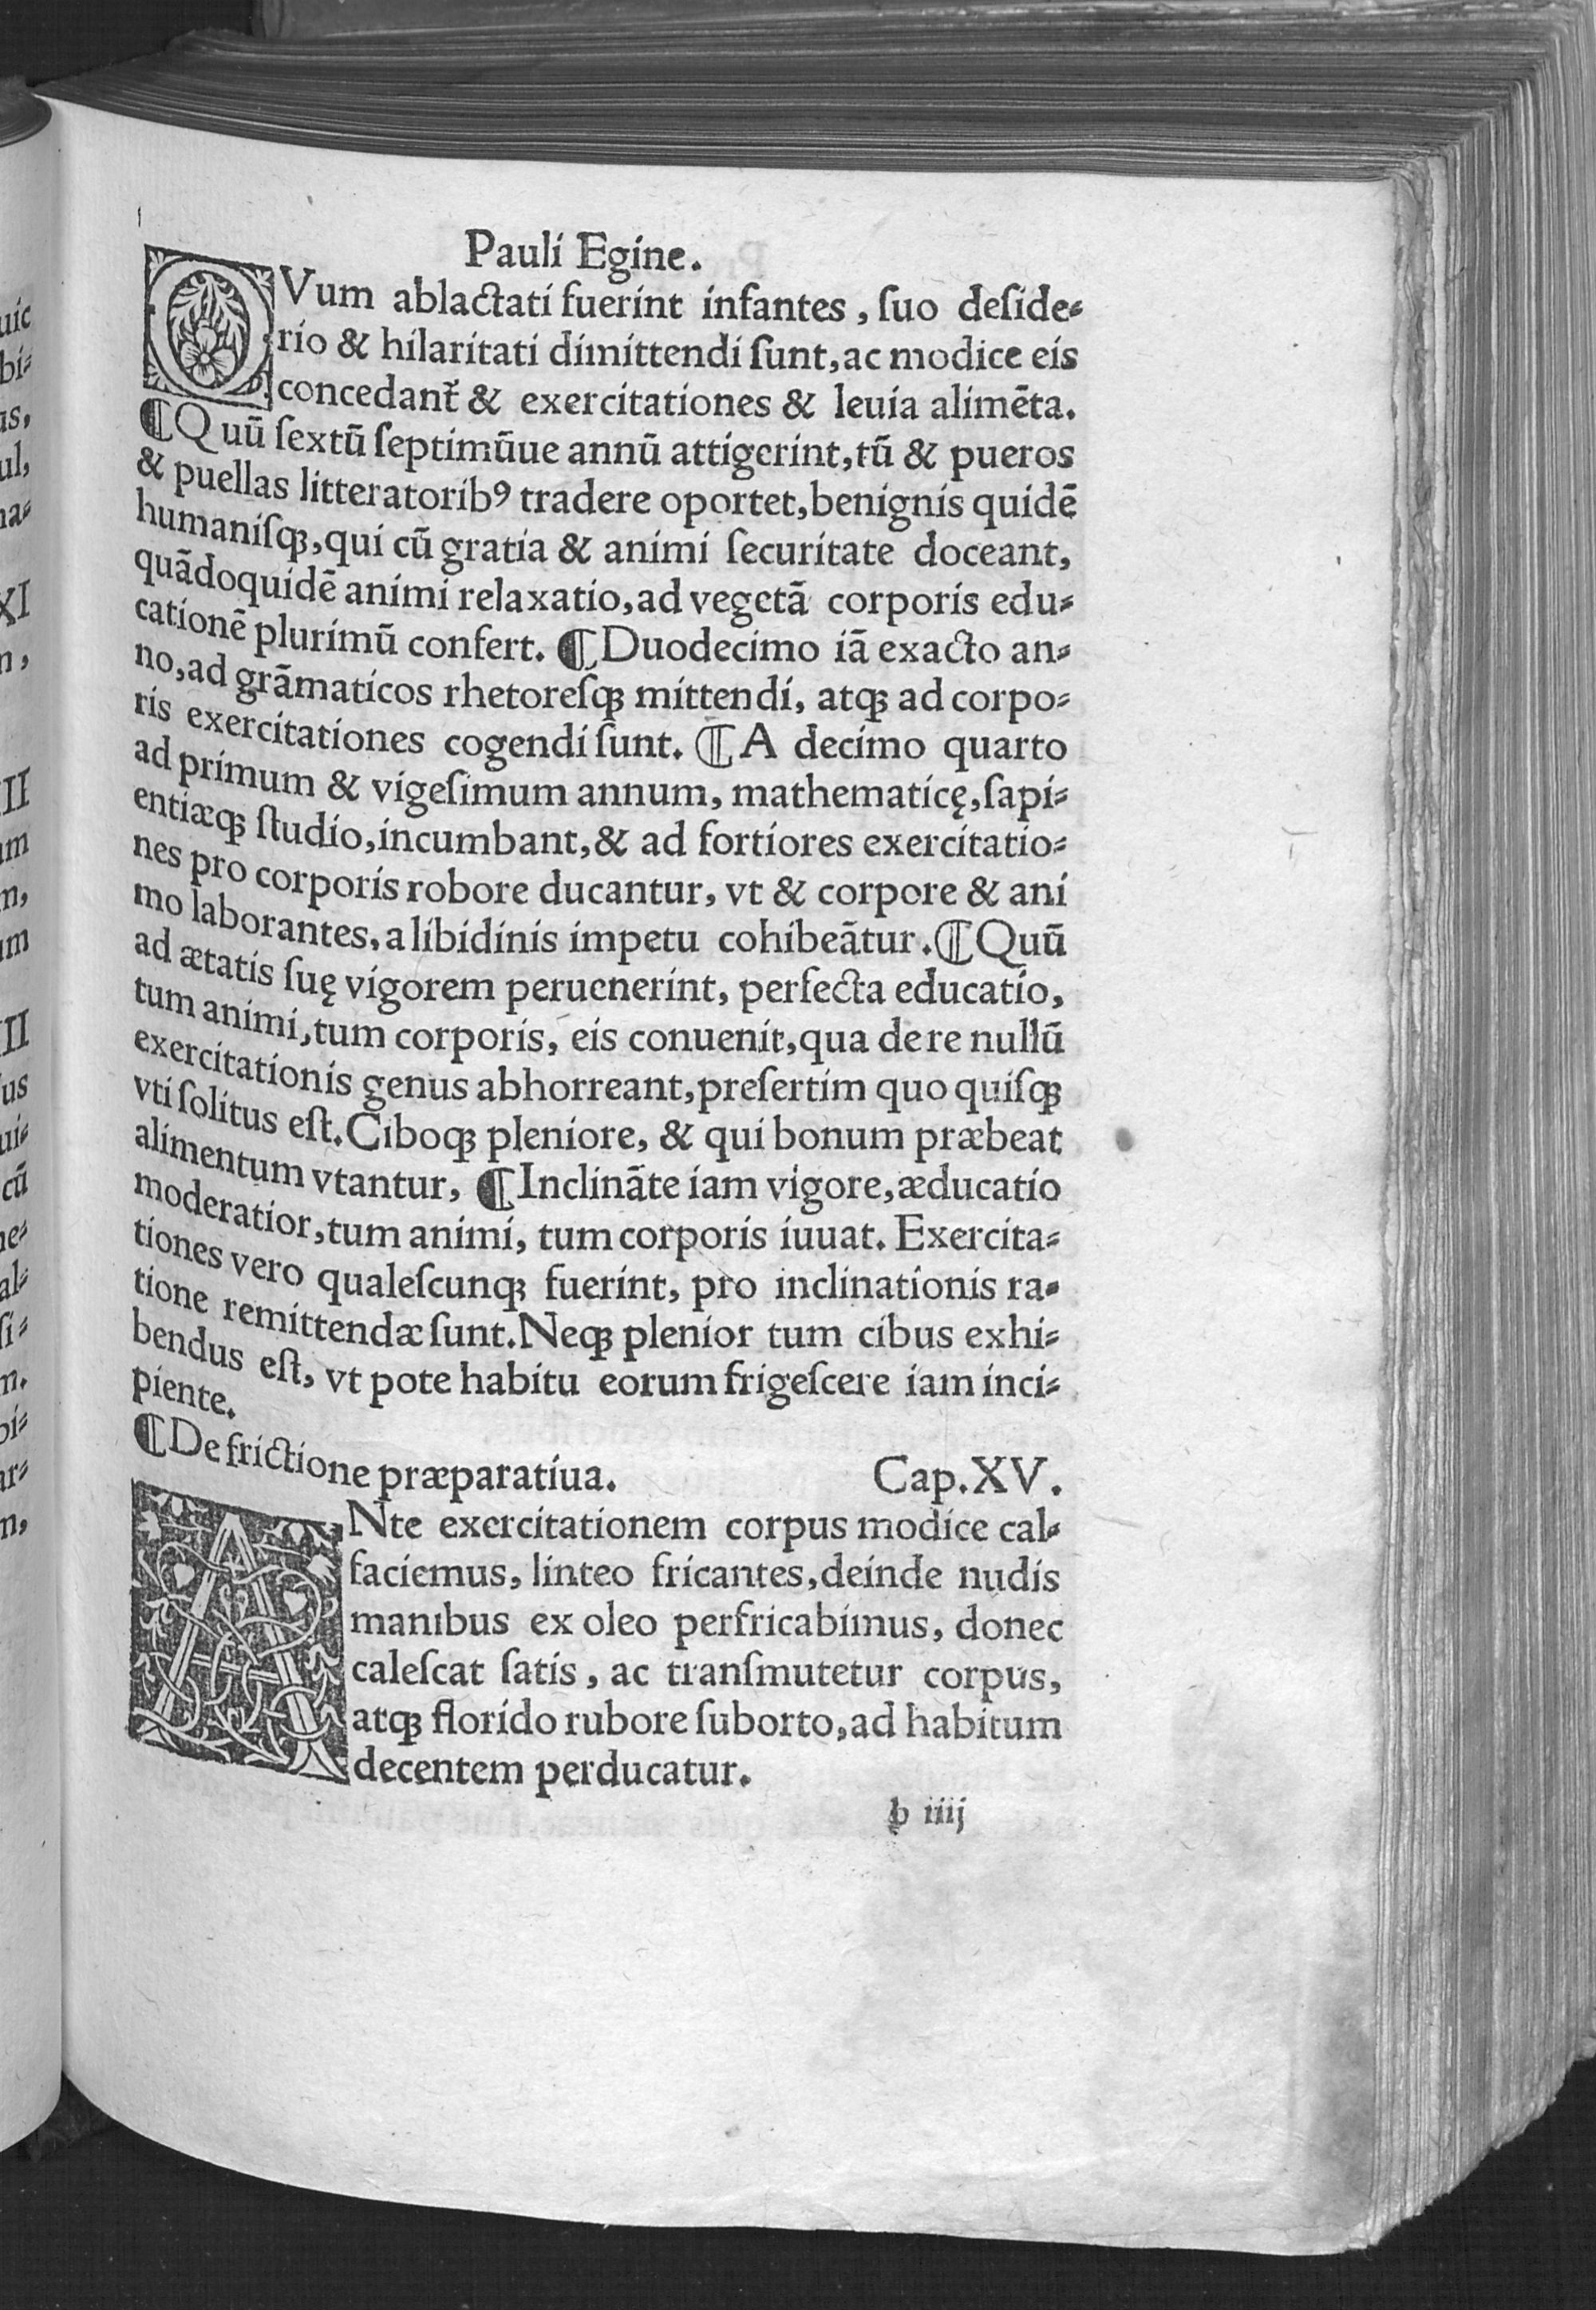 Pauli Egine.
QVum ablactati fuerint infantes, ſuo deſide-
rio & hilaritati dimittendi ſunt, ac modice eis
concedant᷑ & exercitationes & leuia alimēta.
¶Quū ſextū ſeptimūue annū attigerint, tū & pueros
& puellas litteratoribꝰ tradere oportet, benignis quidē
humaniſqꝫ, qui cū gratia & animi ſecuritate doceant,
quādoquidē animi relaxatio, ad vegetā corporis edu-
cationē plurimū confert. ¶Duodecimo iā exacto an-
no, ad grāmaticos rhetoreſqꝫ mittendi, atqꝫ ad corpo-
ris exercitationes cogendi ſunt. ¶A decimo quarto
ad primum & vigeſimum annum, mathematicę, ſapi-
entiæqꝫ ſtudio, incumbant, & ad fortiores exercitatio-
nes pro corporis robore ducantur, vt & corpore & ani
mo laborantes, a libidinis impetu cohibeātur. ¶Quū
ad ætatis ſuę vigorem peruenerint, perfecta educatio,
tum animi, tum corporis, eis conuenit, qua de re nullū
exercitationis genus abhorreant, preſertim quo quiſqꝫ
vti ſolitus eſt. Ciboqꝫ pleniore, & qui bonum præbeat
alimentum vtantur, ¶Inclināte iam vigore, æducatio
moderatior, tum animi, tum corporis iuuat. Exercita-
tiones vero qualeſcunqꝫ fuerint, pro inclinationis ra-
tione remittendæ ſunt. Neqꝫ plenior tum cibus exhi-
bendus eſt, vt pote habitu eorum frigeſcere iam inci-
piente.
¶De frictione præparatiua. Cap. XV.
ANte exercitationem corpus modice cal-
faciemus, linteo fricantes, deinde nudis
manibus ex oleo perfricabimus, donec
caleſcat ſatis, ac tranſmutetur corpus,
atqꝫ florido rubore ſuborto, ad habitum
decentem perducatur.
b iiij